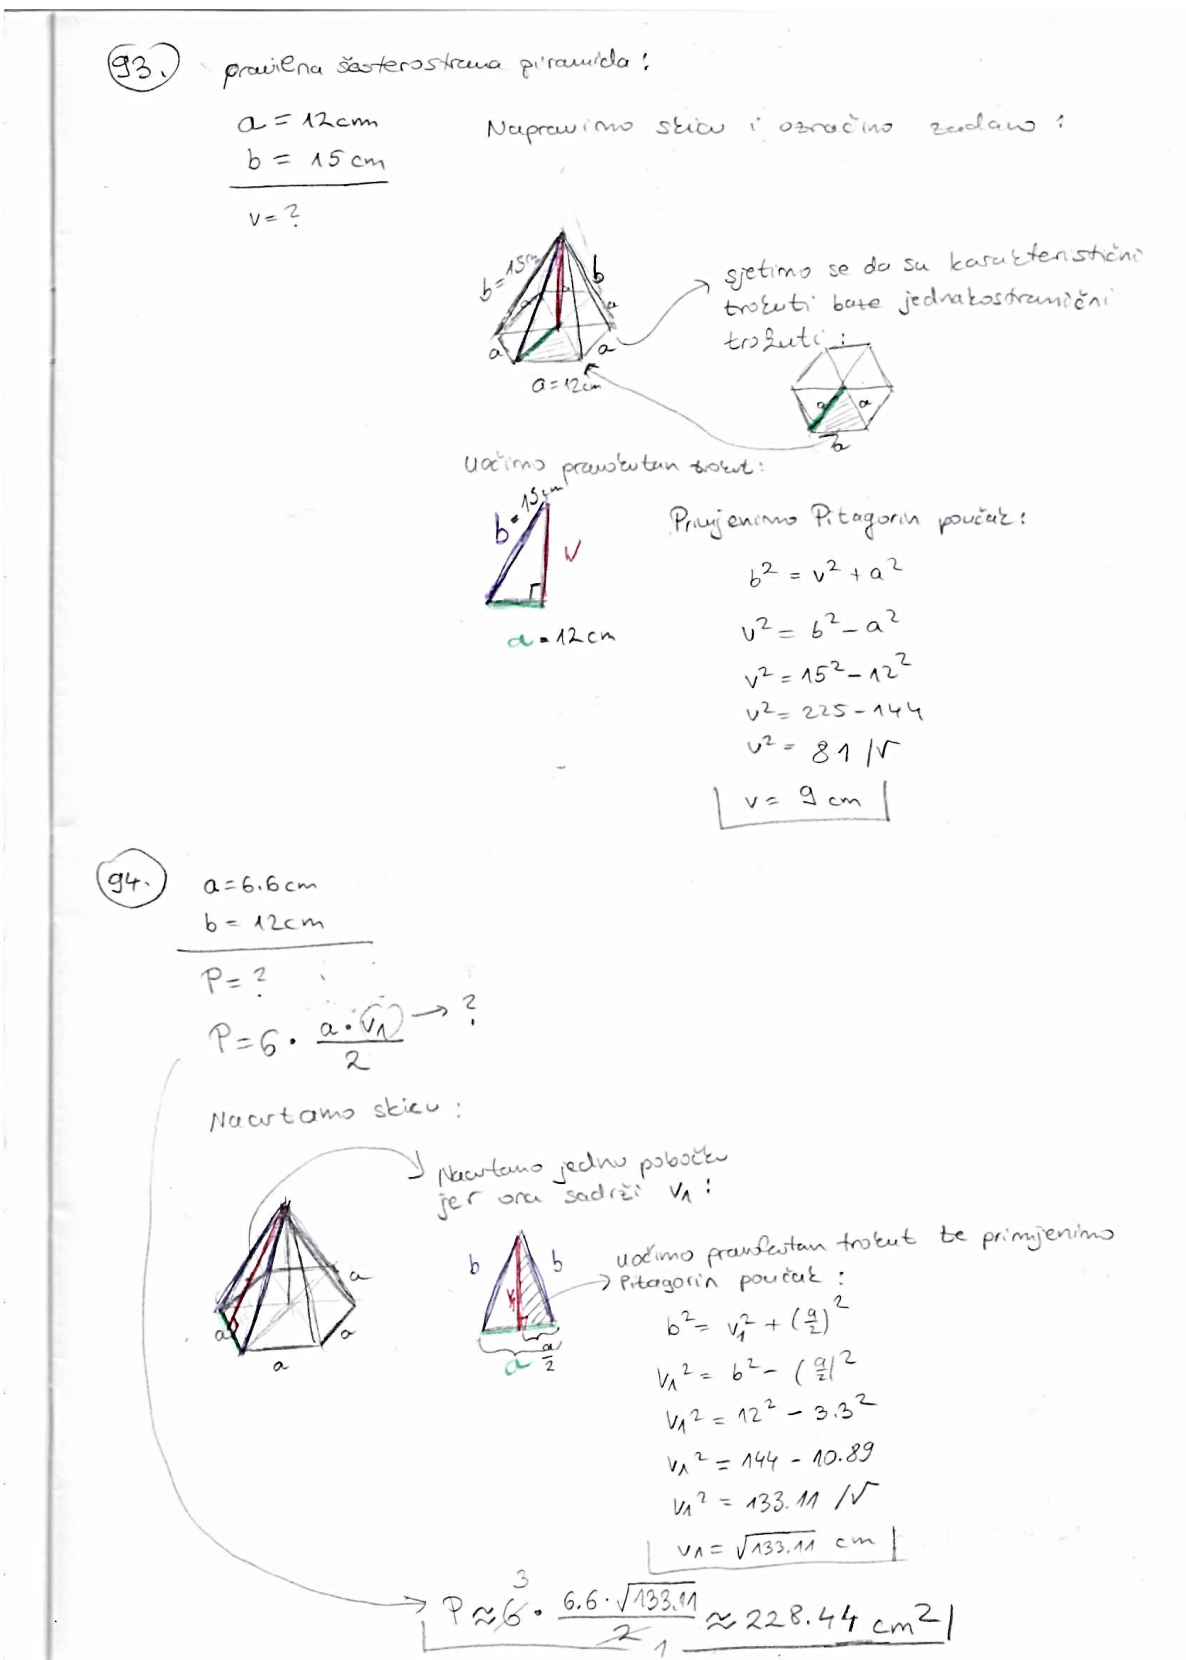 93. pravilna šesterostrana piramida:
a = 12cm
b = 15 cm
v = ?
Napravimo skicu i označimo zadano:
b = 15cm
b
a
a
a
a
a = 12 cm
sjetimo se da su karakteristični
trokuti baze jednakostranični
trokuti:
a
a
a
Uočimo pravokutan trokut:
b = 15cm
v
a = 12cm
Primjenimo Pitagorin poučak:
b² = v² + a²
v² = b² - a²
v² = 15² - 12²
v² = 225 - 144
v² = 81 /√
v = 9 cm
94. a = 6.6 cm
b = 12cm
P = ?
P = 6 · a · v₁ / 2 → ?
Nacrtamo skicu:
a
a
a
a
Nacrtamo jednu pobočku
jer ona sadrži v₁:
b
b
v₁
a/2
a
uočimo pravokutan trokut te primjenimo
Pitagorin poučak:
b² = v₁² + (a/2)²
v₁² = b² - (a/2)²
v₁² = 12² - 3.3²
v₁² = 144 - 10.89
v₁² = 133.11 /√
v₁ = √133.11 cm
P ≈ 6 3 · 6.6 · √133.11 / 2 1 ≈ 228.44 cm²